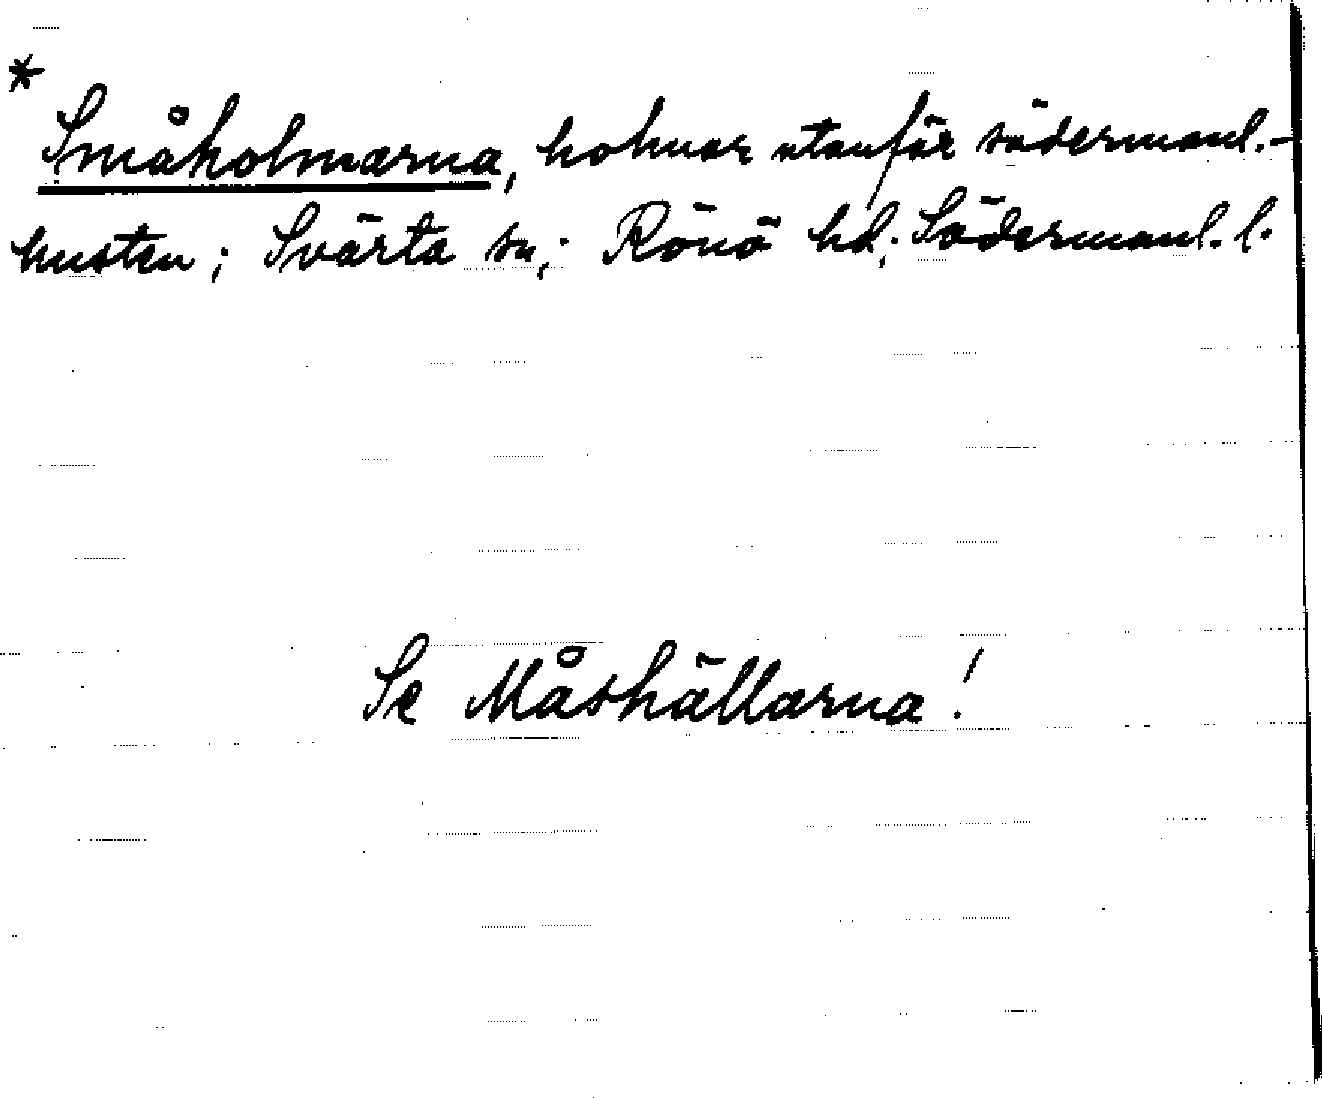 *
Småholmarna, holmar utanför södermanl.-
kusten; Svärta sn; Rönö hd; Södermanl. l.
Se Måshällarna!